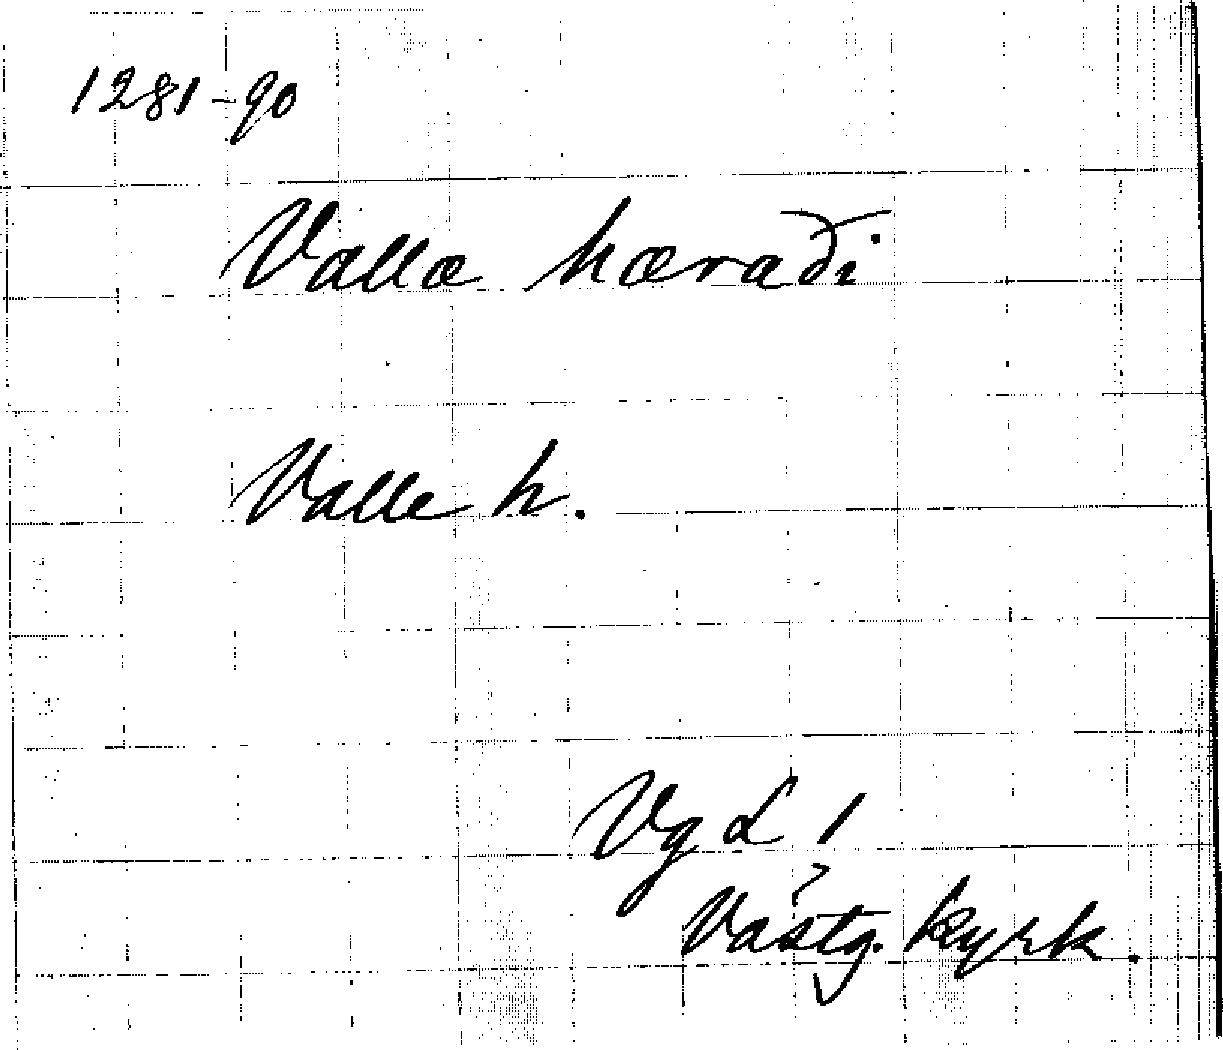 1281-90
Vallæ hæraði
Valle h.
Vg L 1
Västg. kyrk.